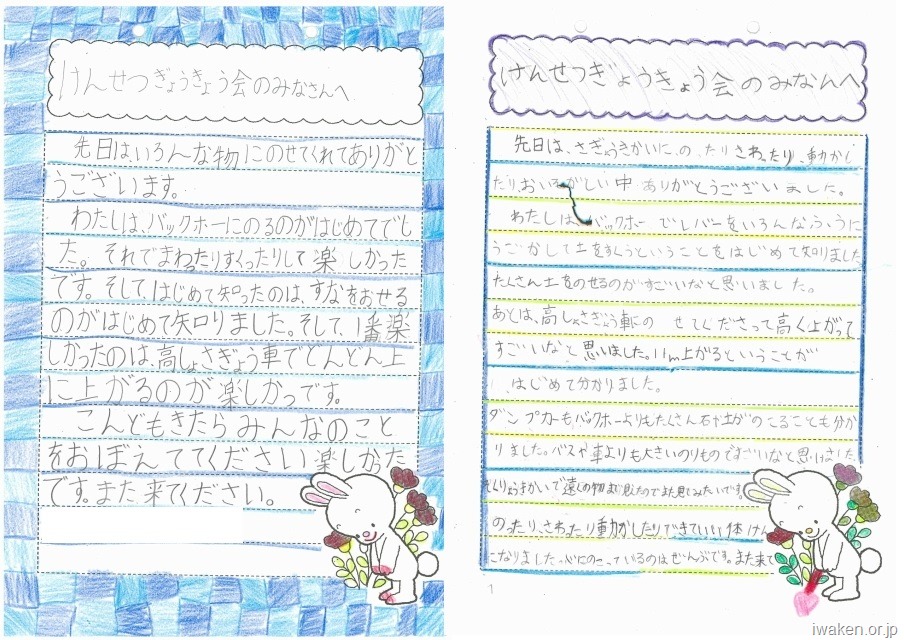 けんせつぎょうきょう会のみなさんへ
先日は、いろんな物にのせてくれてありがと
うございます。
わたしは、バックホーにのるのがはじめてでし
た。それでまわったりすくったりして楽しかった
です。そしてはじめて知ったのは、すなをおせる
のがはじめて知りました。そして一番楽
しかったのは、高しょさぎょう車でどんどん上
に上がるのが楽しかっです。
こんどもきたらみんなのこと
をおぼえててください楽しかった
です。また来てください。
けんせつぎょうきょう会のみなんへ
先日は、さぎょうきかいに、のったりさわったり、動かし
たりおいそがしい中ありがとうございました。
わたしは、バックホーでレバーをいろんなふうに
うごかして土をすくうということをはじめて知りました
たくさん土をのせるのがすごいなと思いました。
あとは、高しょさぎょう車にのせてくださって高く上がって
すごいなと思いました。11m上がるということが
はじめて分かりました。
ダンプカーもバックホーよりもたくさん石や土がのこることも分か
りました。バスや車よりも大きいのりものですごいなと思いました
で遠くの物まで見えたのでまた見てみたいです。
のったり、さわったり動かしたりできていい体けん
になりました。心にのこっているのはぜんぶです。また来て
iwaken.or.jp